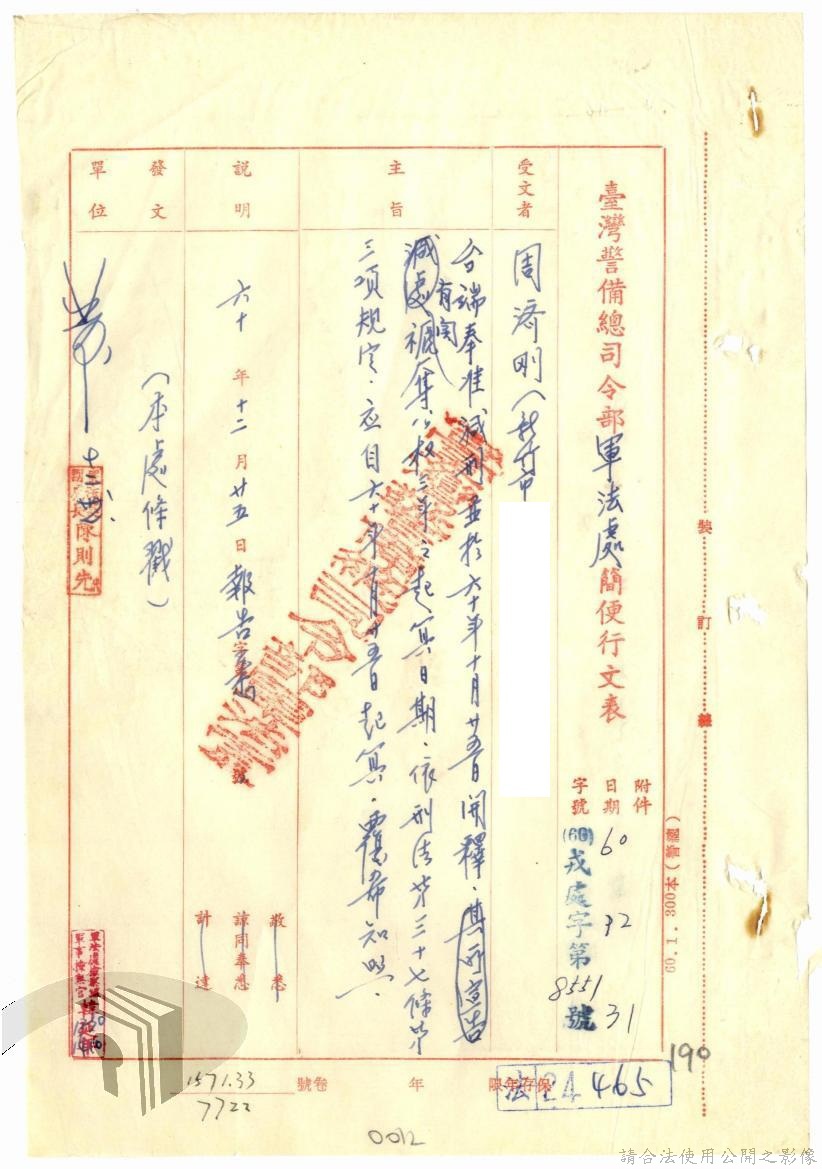 臺灣警備總司令部軍法處簡便行文表
附件
日期 60 12 31
字號 (60)戎處字第8551號
受文者
周濟剛(新竹市
主旨
台端奉准減刑並於六十年十月廿五日開釋、其所宣告
減處褫奪公權三年之起算日期、依刑法第三十七條第
有関
三項規定、應自六十年十月廿五日起算、覆希知照、
說明
六十年十二月廿五日報告
字第
號
敬悉
諒同奉悉
計達
發文單位
(本處條戳)
陳則先
裝訂線
60.1.300本(普通)
190
保存年限
年
卷號
1571.33
7722
法24465
0012
請合法使用公開之影像